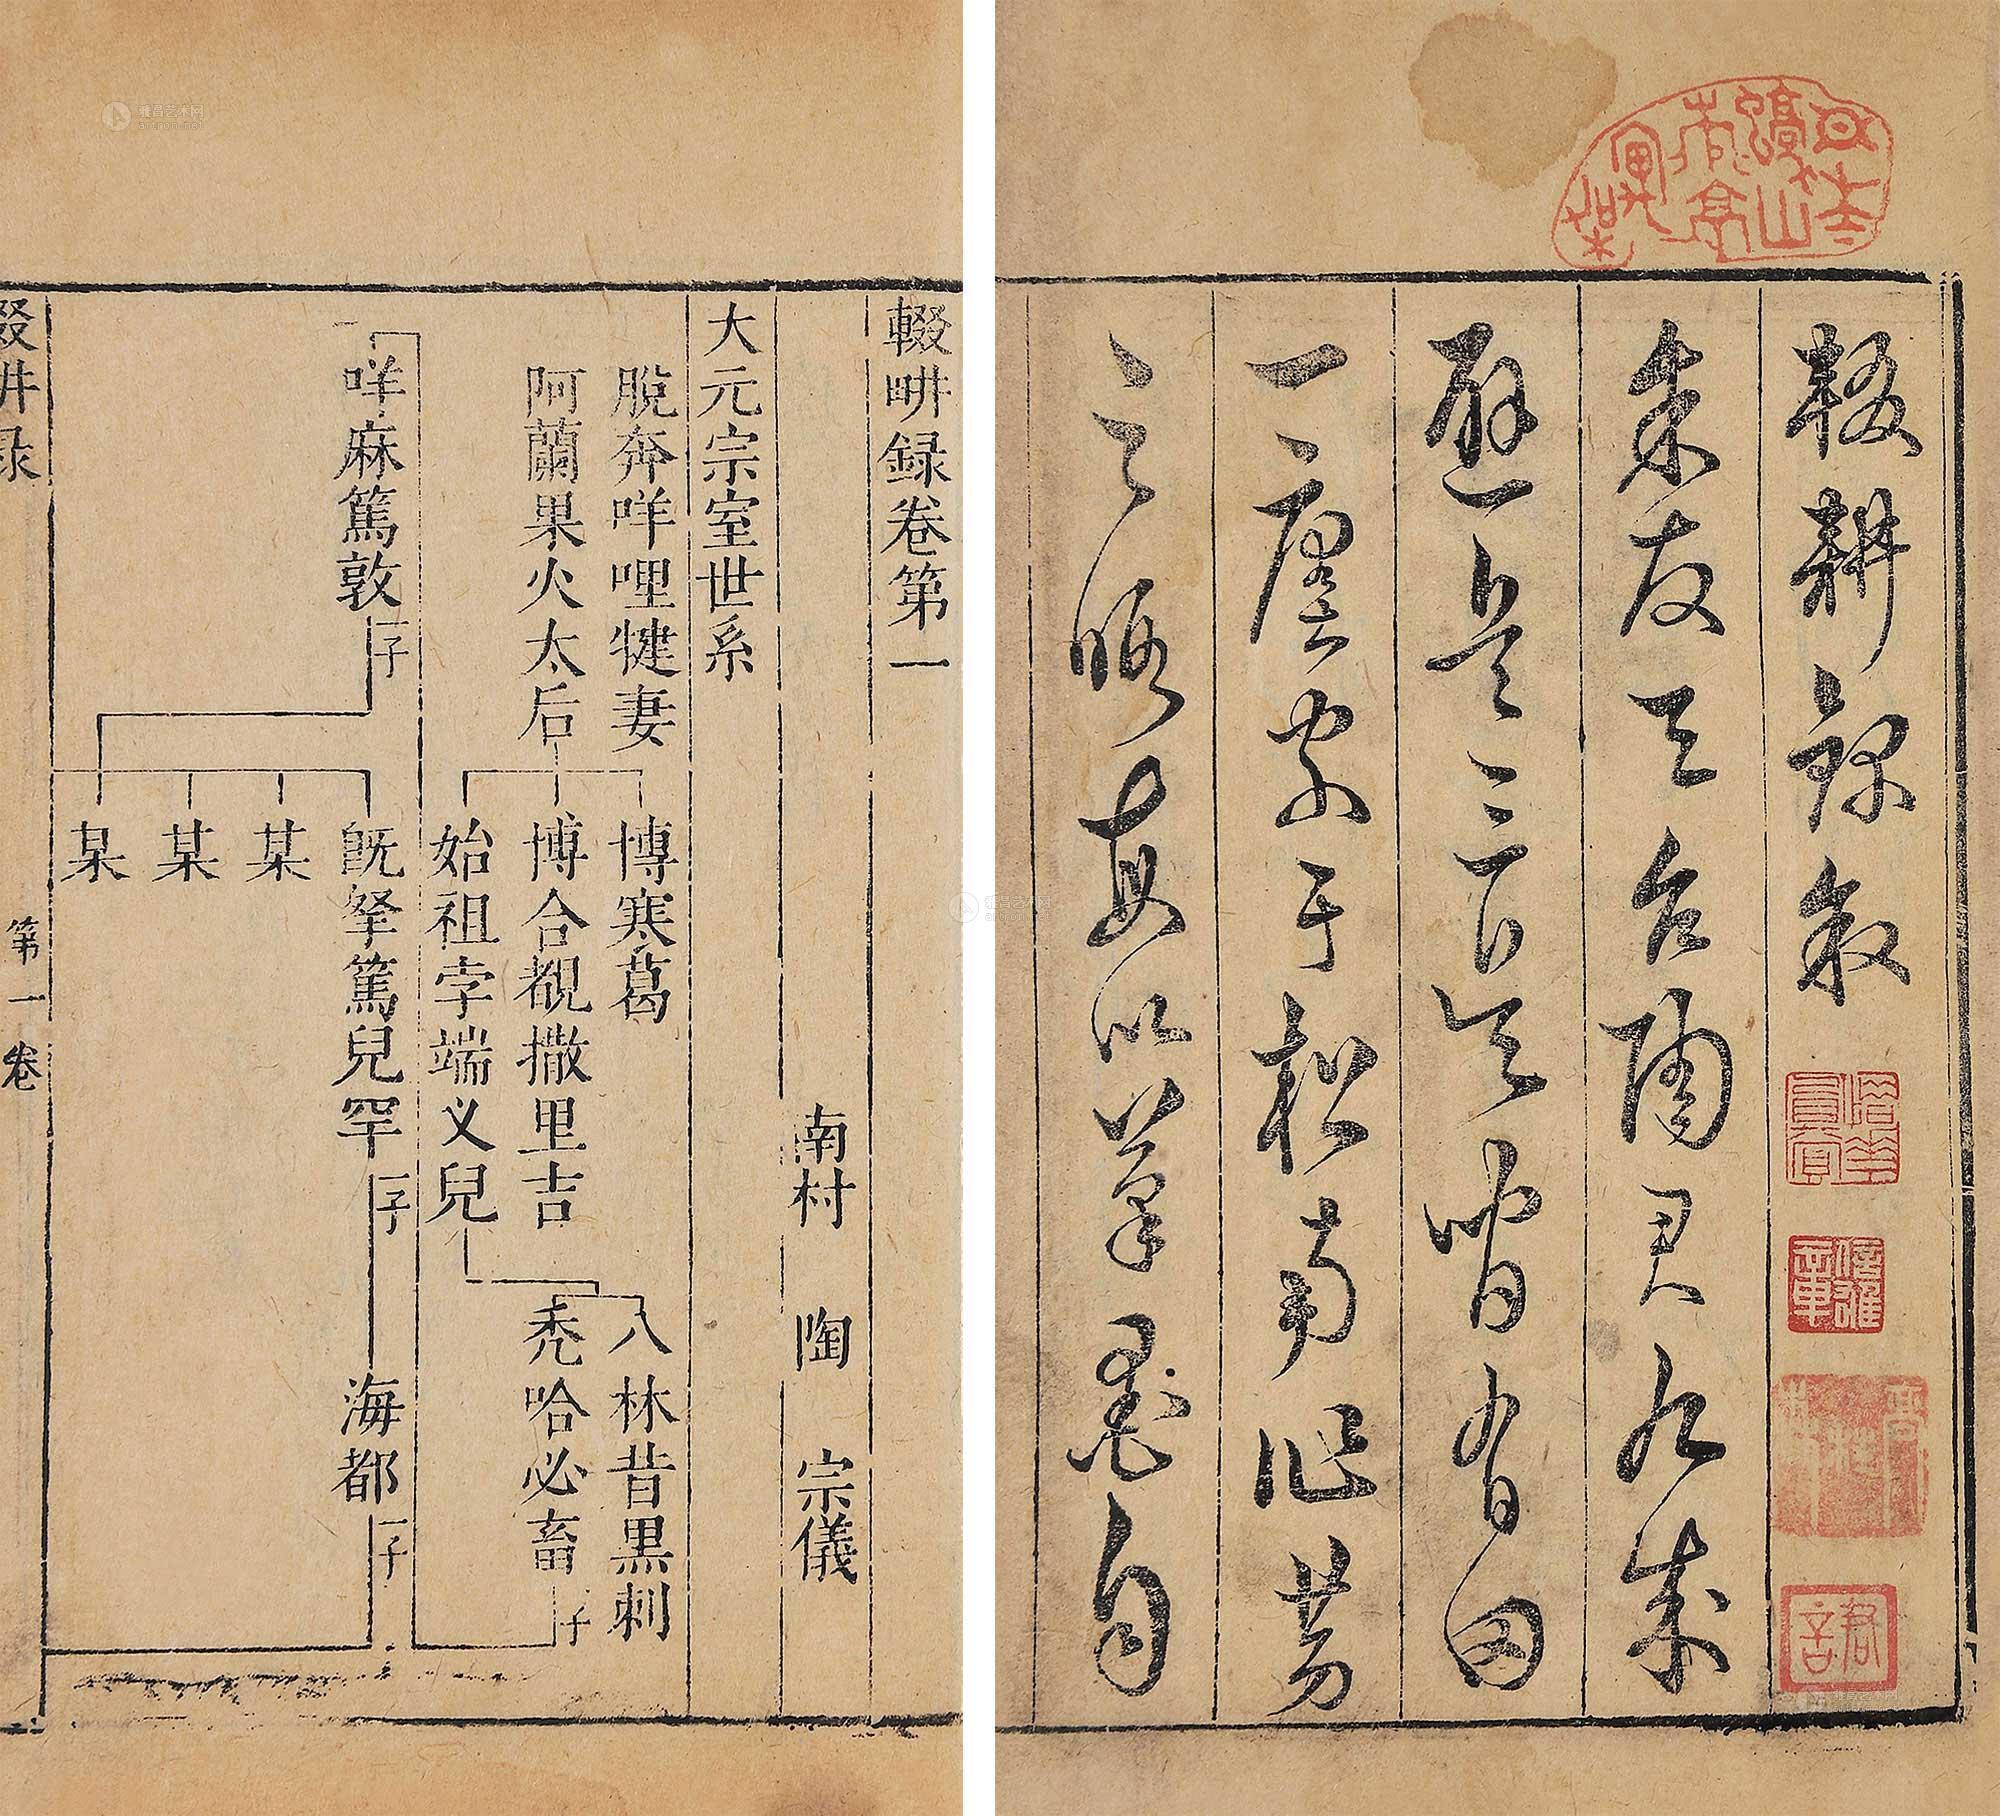 輟耕錄叙
余友天台陶君九成
避兵三吳間有田
一廛家于松南作勞
之暇每以筆墨自
輟畊録卷第一
南村 陶 宗儀
大元宗室世系
脫奔咩哩犍妻 博寒葛 八林昔黑刺
阿蘭果火太后 博合覩撒里吉 禿哈必畜 一子
始祖孛端义兒
咩麻篤敦 一子 既拏篤兒罕 一子 海都 一子
某
某
某
第一卷
雅昌艺术网
artron.net